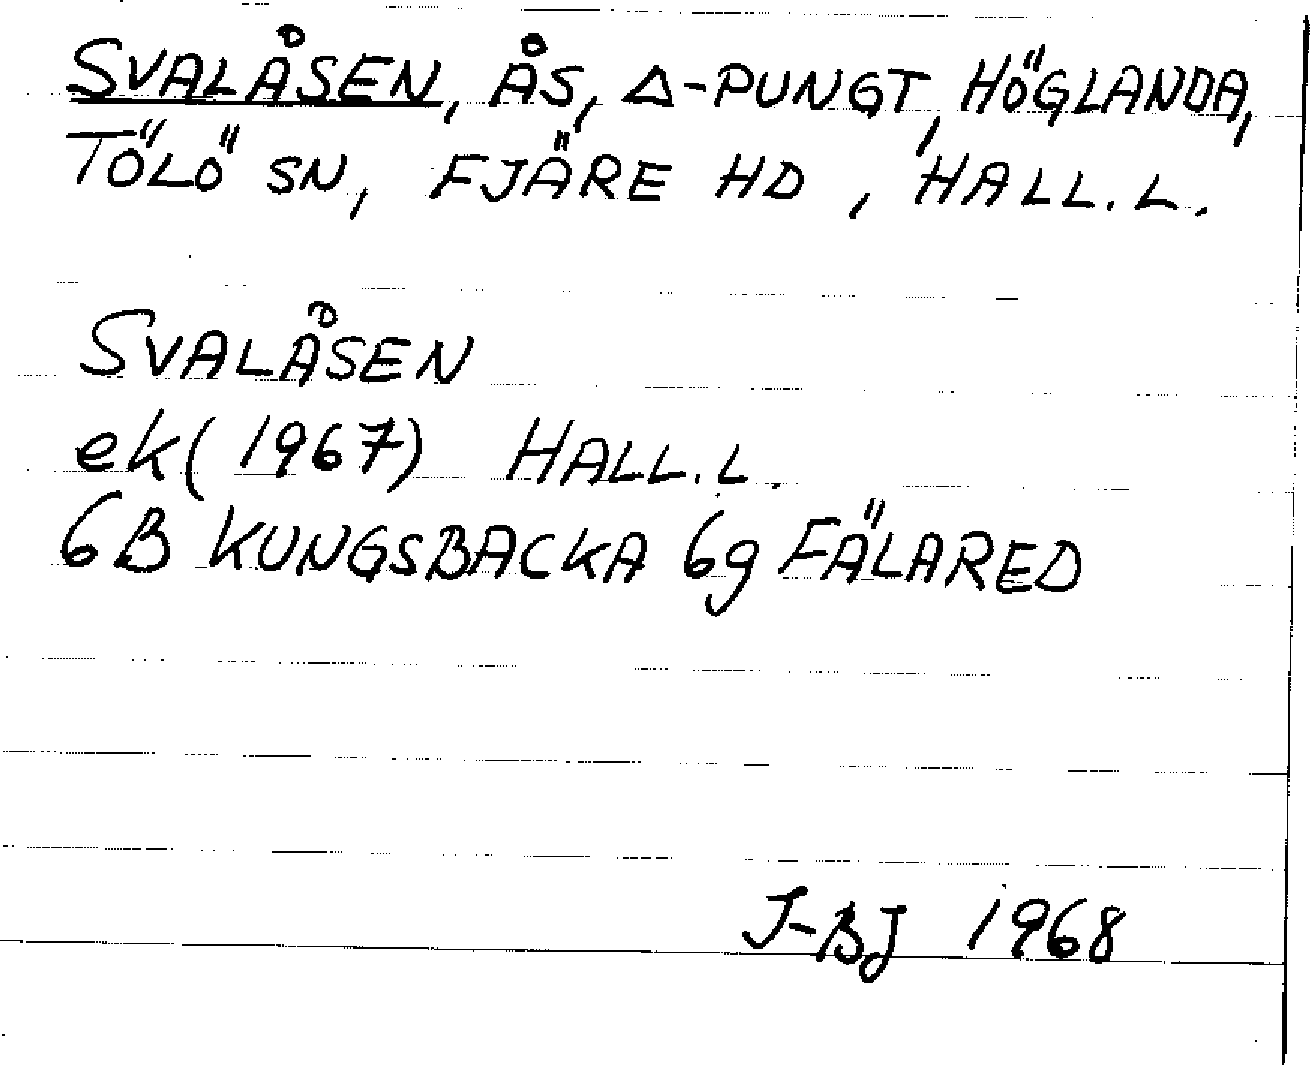 SVALÅSEN, ÅS, Δ-PUNGT, HÖGLANDA,
TÖLÖ SN, FJÄRE HD, HALL.L.
SVALÅSEN
ek(1967) HALL.L.
6B KUNGSBACKA 6g FÄLARED
J-BJ 1968